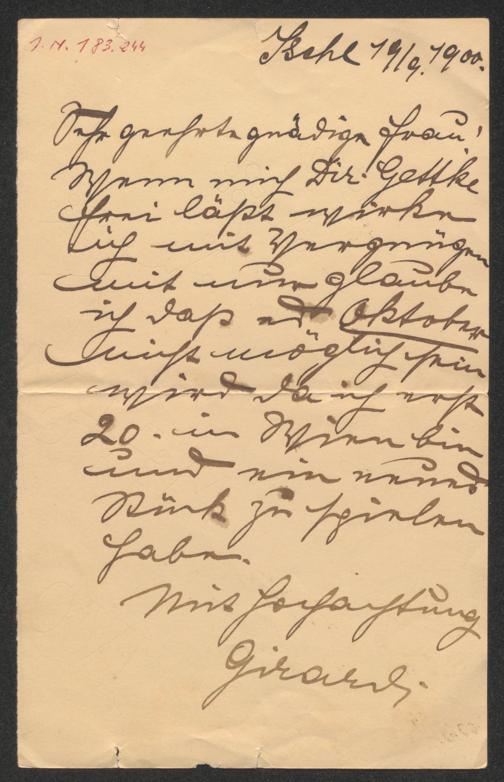 J.N. 183.244
Ischl 19/9. 1900.
Sehr geehrte gnädige Frau!
Wenn mich Dir. Gettke
frei läßt wirke
ich mit Vergnügen
mit nur glaube
ich daß es Oktober
nicht möglich sein
wird da ich erst
20. in Wien bin
und ein neues
Stück zu spielen
habe.
Mit Hochachtung
Girardi